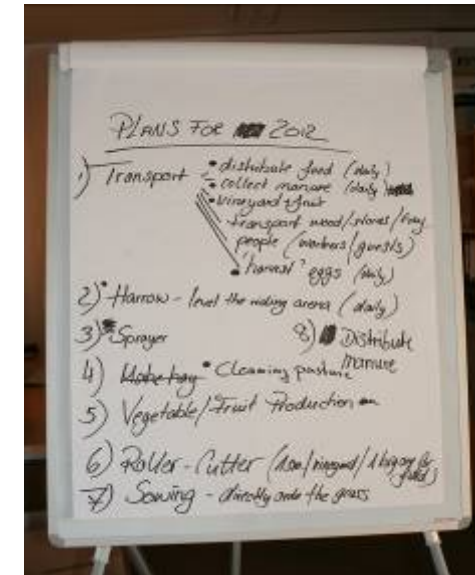 PLANS FOR 2012
1) Transport - • distribute food (daily)
• collect manure (daily)
• vineyard + fruit
transport wood/stones/
people (workers/guests)
• "harvest" eggs (daily)
2) • Harrow - level the riding arena (daily)
3) Sprayer
8) Distribute manure
4) Make hay • Cleaning pasture
5) Vegetable/Fruit Production
6) Roller-Cutter (1 /vineyard/1 big one for
7) Sowing - directly onto the grass